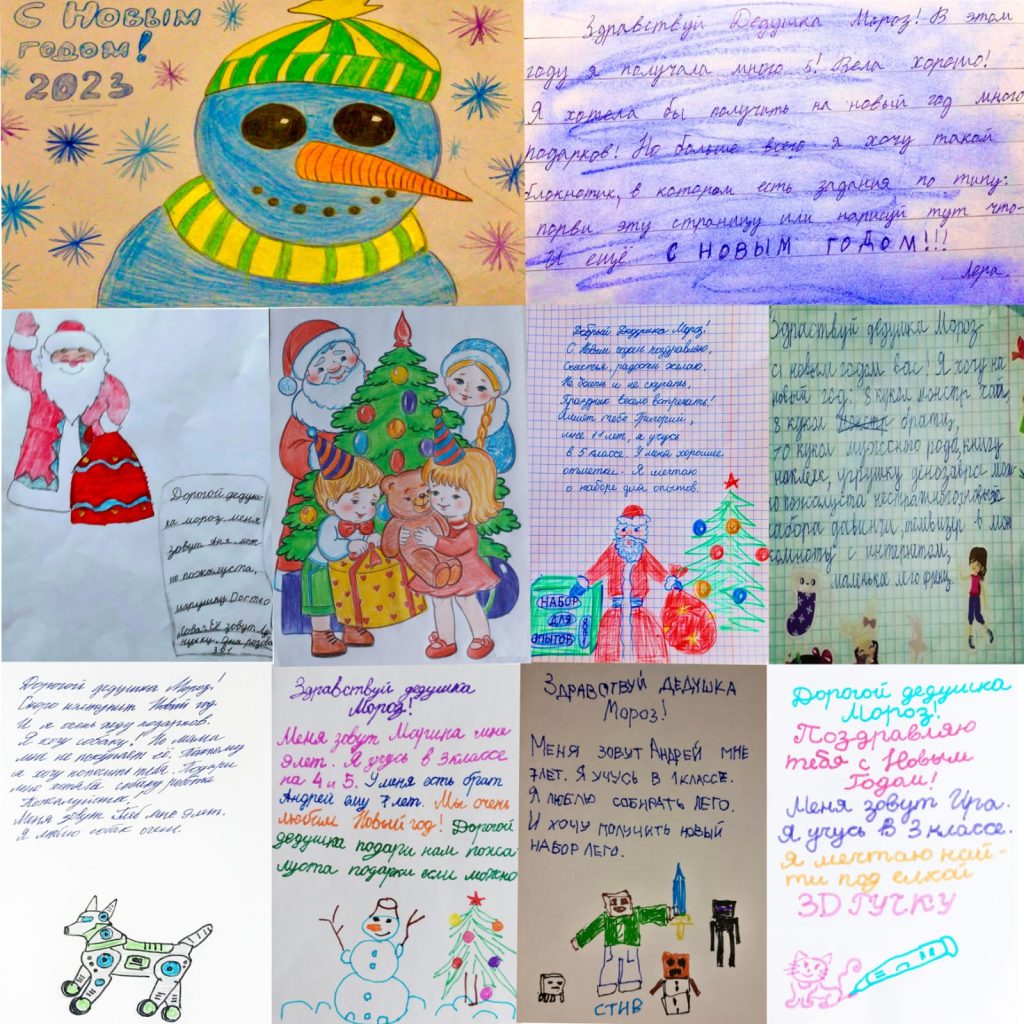 С Новым
годом!
2023
Здравствуй Дедушка Мороз! В этом
году я получала много 5! Вела хорошо!
Я хотела бы получить на новый год много
подарков! Но больше всего я хочу такой
блокнотик, в котором есть задания по типу:
порви эту страницу или напиши тут что-
И ещё С НОВЫМ ГОДОМ!!!
Лера.
Дорогой дедуш
ка мороз меня
зовут Аня. мож
но пожалуста,
игрушку
зовут
Она розова
Добрый Дедушка Мороз!
С Новым годом поздравляю,
Счастья, радости желаю,
Не болеть и не скучать,
Праздник весело встречать!
Пишет тебе Григорий,
мне 11 лет, я учусь
в 5 классе. У меня хорошие
отметки. Я мечтаю
о наборе для опытов.
НАБОР
ДЛЯ
ОПЫТОВ
Здраствуй дедушка Мороз
с новым годом вас! Я хочу на
новый год: 8 кукол монстр хай,
8 кукол братц,
10 кукол мужского рода, книгу
наклеек, игрушку динозавра мож
но пожалуста
набора давинчи, телвизер в мою
комноты с интернатом,
маленькое лего френц.
Дорогой дедушка Мороз!
Скоро наступит Новый год.
И я очень жду подарков.
Я хочу собаку! Но мама
мне не покупает её. Поэтому
я хочу попросить тебя. Подари
мне хотябы собаку робота
Пожалуйста.
Меня зовут мне 9 лет.
Я люблю собак очень.
Здравствуй дедушка
Мороз!
Меня зовут Марина мне
9 лет. Я учусь в 3 классе
на 4 и 5. У меня есть брат
Андрей ему 7 лет. Мы очень
любим Новый год! Дорогой
дедушка подари нам пожа
луста подарки если можно
ЗДРАВСТВУЙ ДЕДУШКА
МОРОЗ!
МЕНЯ ЗОВУТ АНДРЕЙ МНЕ
7 ЛЕТ. Я УЧУСЬ В 1 КЛАССЕ.
Я ЛЮБЛЮ СОБИРАТЬ ЛЕГО.
И ХОЧУ ПОЛУЧИТЬ НОВЫЙ
НАБОР ЛЕГО.
СТИВ
Дорогой дедушка
Мороз!
Поздравляю
тебя с Новым
Годом!
Меня зовут Ира.
Я учусь в 3 классе.
Я мечтаю най-
ти под елкой
3D РУЧКУ